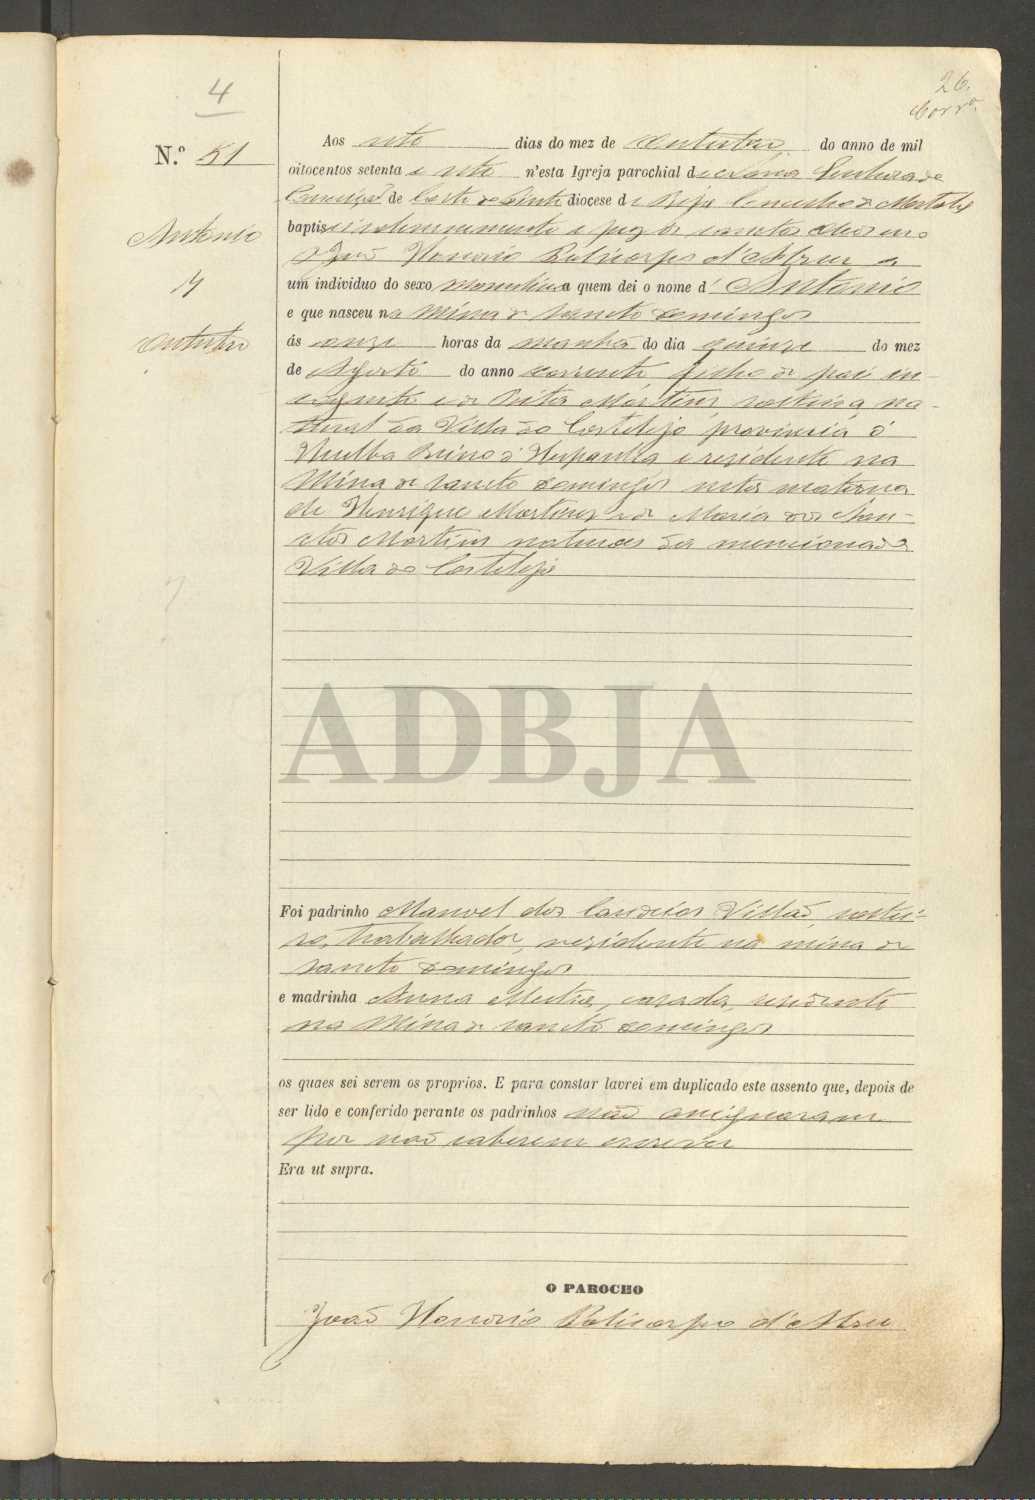 4
26.
Aos sete dias do mez de Outubro do anno de mil
N.º 51
oitocentos setenta e sete n'esta Igreja parochial de Nossa Senhora da
Conceição de Corte do Pinto diocese de Beja Concelho de Mertola
baptisei solemnemente e puz os sanctos oleos eu
Antonio
João Honorio Policarpo d'Abreu a
um individuo do sexo masculino a quem dei o nome d' Antonio
e que nasceu na Mina de Sancto Domingos
ás onze horas da manhã do dia quinze do mez
Outubro
de Agosto do anno corrente filho de pai in-
cognito e de Rita Martins solteira na-
tural da Villa do Castilejo provincia d'
Huelba Reino d' Hespanha e residente na
Mina de Sancto Domingos neto materno
de Henrique Martins e de Maria dos San-
ctos Martins naturaes da mencionada
Villa do Castilejo
ADBJA
Foi padrinho Manoel dos Villão, soltei-
ro, trabalhador, residente na mina de
Sancto Domingos
e madrinha Anna Mestra, casada, residente
na Mina de Sancto Domingos
os quaes sei serem os proprios. E para constar lavrei em duplicado este assento que, depois de
ser lido e conferido perante os padrinhos não assignaram
por não saberem escrever
Era ut supra.
O PAROCHO
João Honorio Policarpo d'Abreu